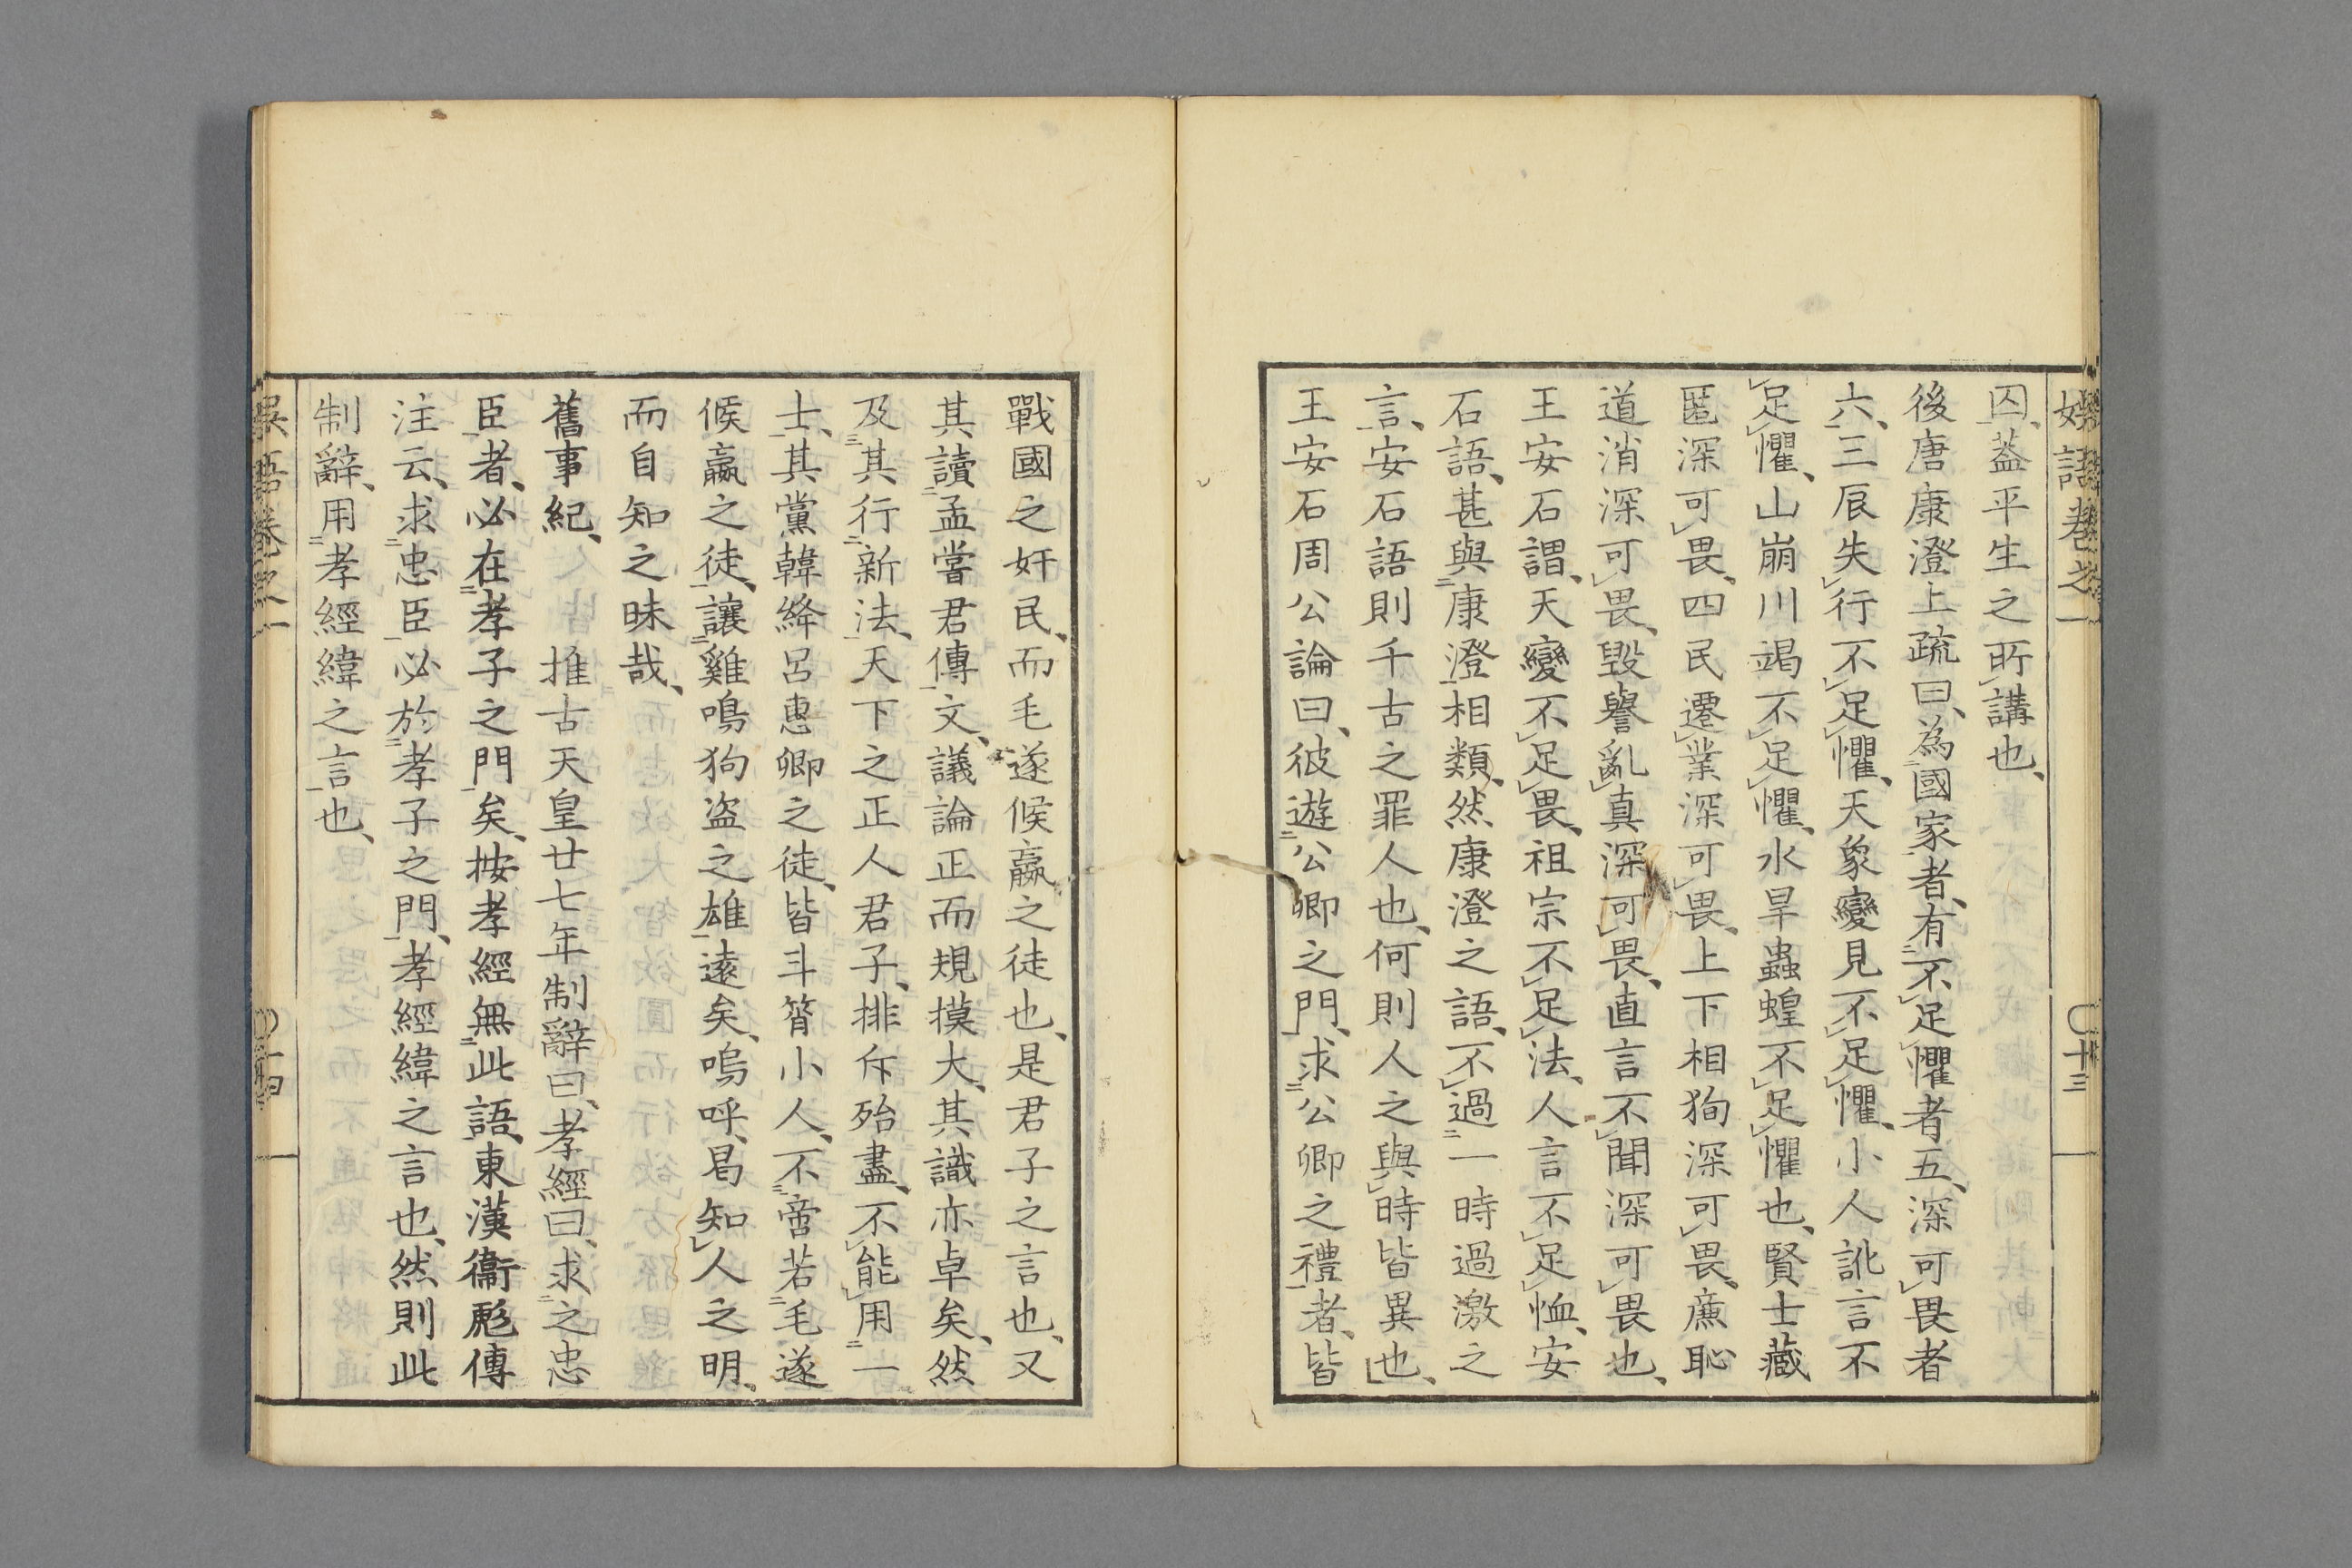 娯語卷之一 〇十三
囚、蓋平生之所講也、
後唐康澄上疏曰、為國家者、有不足懼者五、深可畏者
六、三辰失行不足懼、天象變見不足懼、小人訛言不
足懼、山崩川竭不足懼、水旱蟲蝗不足懼也、賢士藏
匿深可畏、四民遷業深可畏、上下相狥深可畏、廉恥
道消深可畏、毀譽亂真深可畏、直言不聞深可畏也、
王安石謂、天變不足畏、祖宗不足法、人言不足恤、安
石語、甚與康澄相類、然康澄之語、不過一時過激之
言、安石語則千古之罪人也、何則人之與時皆異也、
王安石周公論曰、彼遊公卿之門、求公卿之禮者、皆
戰國之奸民、而毛遂候嬴之徒也、是君子之言也、又
其讀孟嘗君傳文、議論正而規摸大、其識亦卓矣、然
及其行新法、天下之正人君子、排斥殆盡、不能用一
士、其黨韓絳呂惠卿之徒、皆斗筲小人、不啻若毛遂
候嬴之徒、讓雞鳴狗盗之雄遠矣、嗚呼、曷知人之明、
而自知之昧哉、
舊事紀、　推古天皇廿七年制辭曰、孝經曰、求之忠
臣者、必在孝子之門矣、按孝經無此語、東漢衞彪傳
注云、求忠臣必於孝子之門、孝經緯之言也、然則此
制辭、用孝經緯之言也、